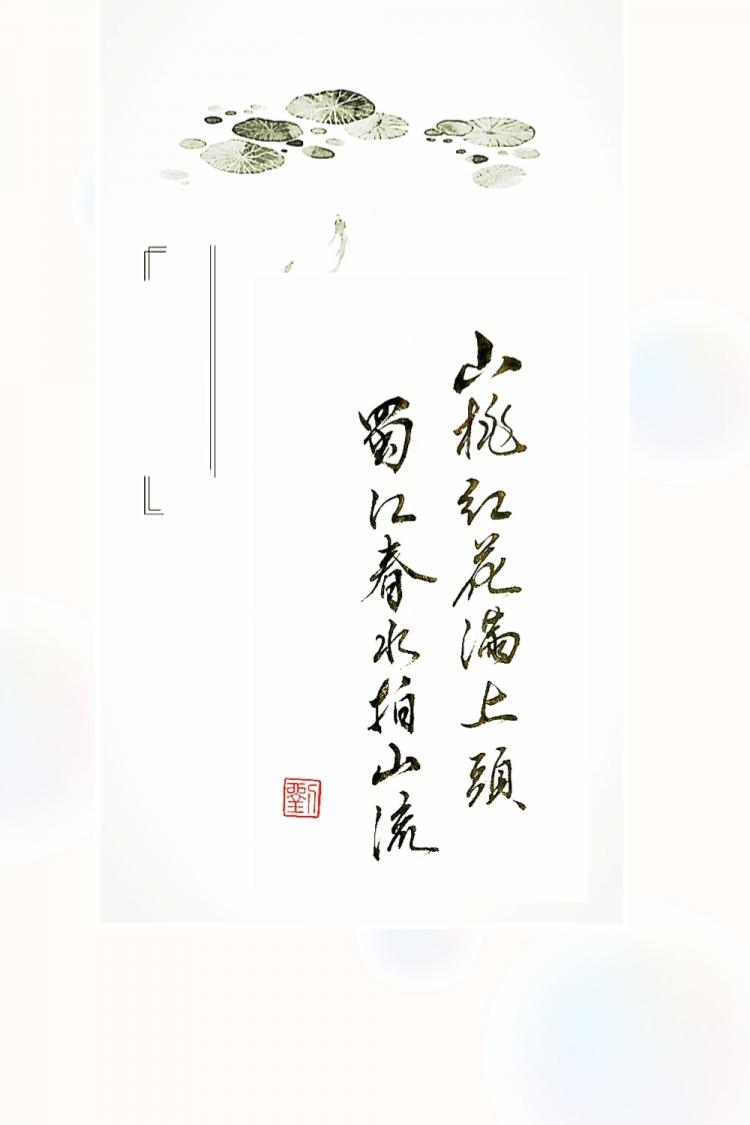 山桃红花满上頭
蜀江春水拍山流
劉